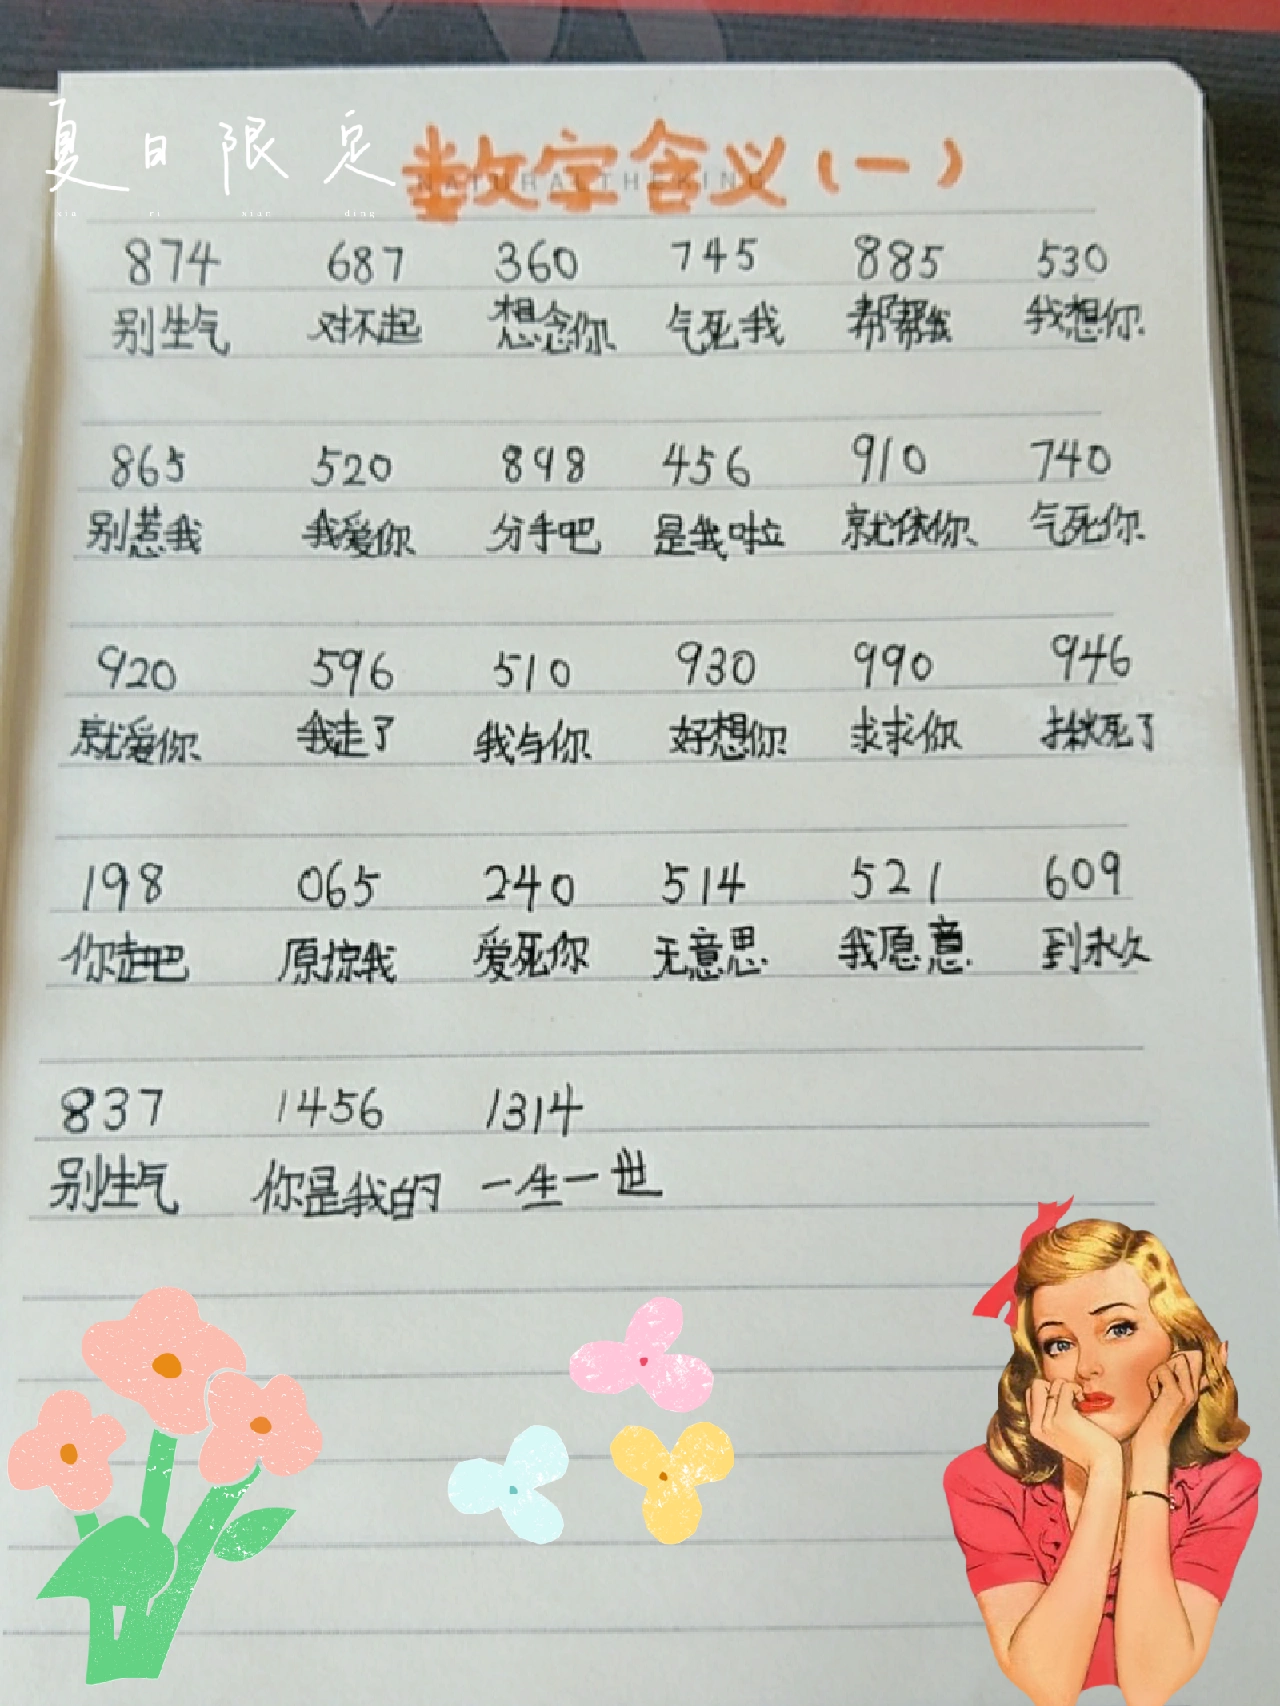 夏日限定
xia ri xian ding
数字含义(一)
874 687 360 745 885 530
别生气 对不起 想念你 气死我 帮帮我 我想你
865 520 898 456 910 740
别惹我 我爱你 分手吧 是我啦 就依你 气死你
920 596 510 930 990 946
就爱你 我走了 我与你 好想你 求求你 死了
198 065 240 514 521 609
你走吧 原惊我 爱死你 无意思 我愿意 到永久
837 1456 1314
别生气 你是我的 一生一世